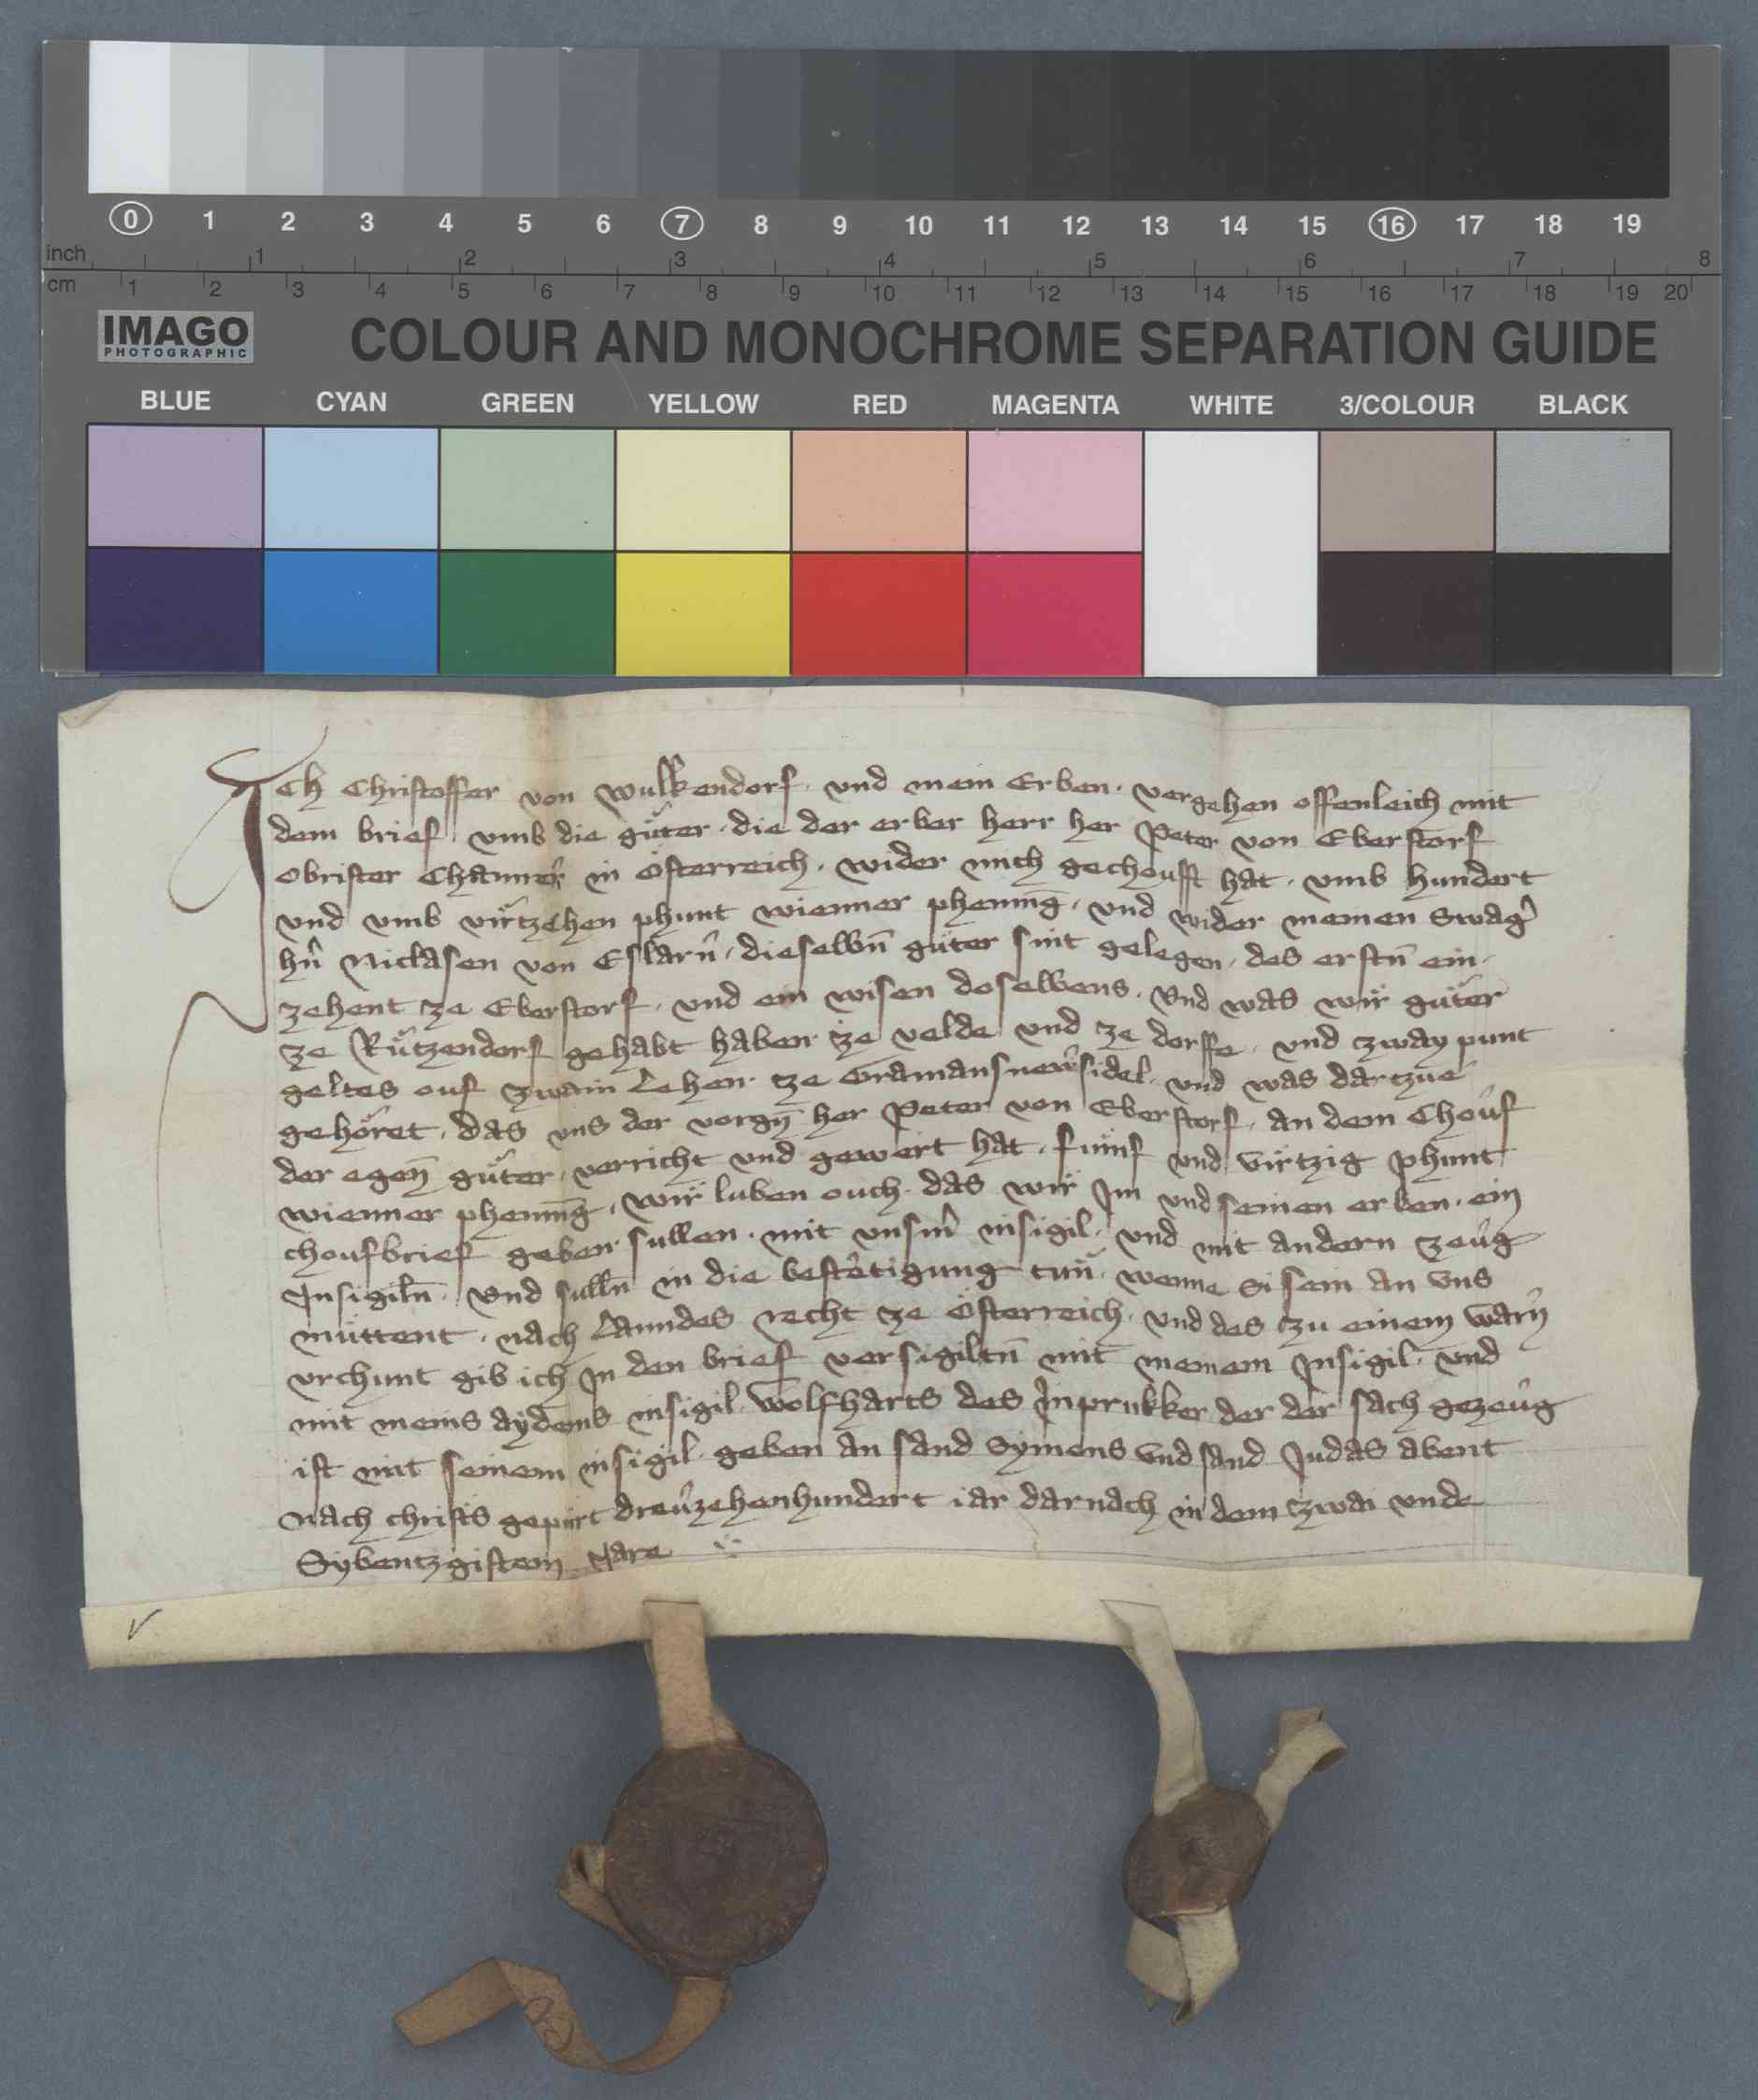 0 1 2 3 4 5 6 7 8 9 10 11 12 13 14 15 16 17 18 19
inch 1 2 3 4 5 6 7 8
cm 1 2 3 4 5 6 7 8 9 10 11 12 13 14 15 16 17 18 19 20
IMAGO
PHOTOGRAPHIC
COLOUR AND MONOCHROME SEPARATION GUIDE
BLUE CYAN GREEN YELLOW RED MAGENTA WHITE 3/COLOUR BLACK
Ich Christoffer von Wulkendorf · vnd mein Erben · vergehen offenleich mit
dem brief · vmb die guͤter · die der erber herr her Peter von Eberstorf
obrister Chamrer in Österreich · wider mich gechoufft hat · vmb hundert
vnd vmb virtzehen phunt wienner phenning · vnd wider meinen Swag̉
hn̉ Niclasen von Eslarn̄ · dieselbn̄ guͤter sint gelegen · des erstn̄ ein ·
zehent ze Eberstorf · vnd ein wisen doselbens · Vnd was wir guͤter
ze Ruͤtzendorf gehabt haben ze velde vnd ze dorffe · vnd zway punt
geltes ouf zwain Lehen · ze Gramansnewsidel · vnd was dartzue
gehöret · das vns der vorgn̄ her Peter von Eberstorf · an dem Chouf
der egen̄ guͤter · verricht vnd gewert hat · fuͤnf vnd virtzig phunt
wienner phenning · Wir luben ouch · das wir Im vnd seinen erben · ein
choufbrief geben sullen · mit vnsm̉ insigil · vnd mit andern zeug
Insigiln̄ · Vnd sulln̄ in die bestetigung tun · wenne si sein an vns
muttent · nach Lanndes recht ze Österreich · vnd des zu einem warn̉
vrchunt gib ich In den brief versigiltn̄ mit meinem Insigil · vnd
mit meins aydems insigil · Wolfharts des Inprukker der der sach gezeug
ist mit seinem insigil · geben an sand Symons vnd sand Judas abent
nach christs gepurt dreuzehenhundert iar darnach in dem zwai vnde
Sybentzgistem Jare